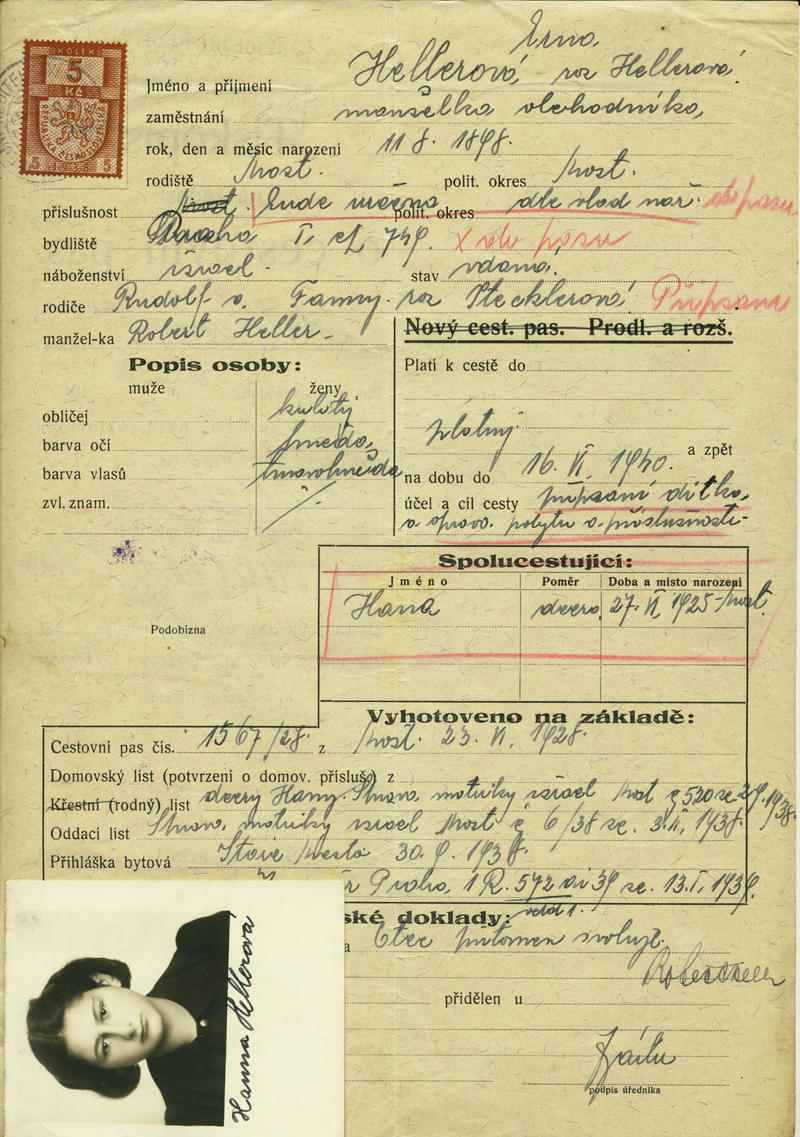 KOLEK
5
Kč
REPUBLIKA ČESKOSLOVENSKÁ
5 1938 5
Erna
Jméno a příjmení Hellerová roz Hellerová
zaměstnání manželka obchodníka
rok, den a měsíc narození 11 8. 1898.
rodiště Most. polit. okres Most.
příslušnost Most. bude určena polit. okres dle vlad nař. do pasu
bydliště Praha I. čp 749. x do pasu
náboženství israel. stav vdaná
rodiče Rudolf a Fanny roz Stecklerová Připsání
manžel-ka Robert Heller Nový cest. pas. Prodl. a rozš.
Popis osoby: Platí k cestě do
muže ženy
obličej kulatý
platný
barva očí hnědá a zpět
barva vlasů tmavohnědá na dobu do 16. VI. 1940.
zvl. znam. /. účel a cíl cesty připsaní dítka
a oprava pobytu a příslušnosti
Spolucestující:
Jméno Poměr Doba a místo narození
Hana dcera 27. VI. 1925 Most.
Podobizna
Vyhotoveno na základě:
Cestovní pas čís. 1567/28. z Most. 23. VI. 1928.
Domovský list (potvrzení o domov. přísluš.) z
Křestní (rodný) list dcery Hany matriky israel Most č 520 ze 29. 1938.
Oddací list matriky israel Most č 6/38 ze 3. II. 1938.
Přihláška bytová Staré Město 30. 9. 1938.
Praha, 1 R. 572 ai 39 ze. 13. I. 1939.
ské doklady:
Otec přítomen svoluje.
Robert Heller
přidělen u
podpis úředníka
Hanna Hellerová